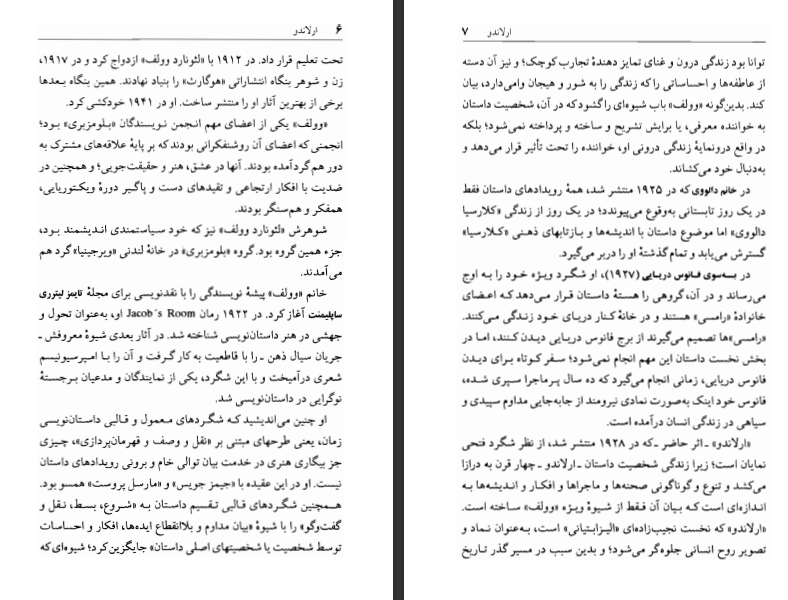 ۶ ارلاندو
تحت تعلیم قرار داد. در ۱۹۱۲ با «لئونارد وولف» ازدواج کرد و در ۱۹۱۷،
زن و شوهر بنگاه انتشاراتی «هوگارث» را بنیاد نهادند. همین بنگاه بعدها
برخی از بهترین آثار او را منتشر ساخت. او در ۱۹۴۱ خودکشی کرد.
«وولف» یکی از اعضای مهم انجمن نویسندگان «بلومزبری» بود؛
انجمنی که اعضای آن روشنفکرانی بودند که بر پایهٔ علاقه‌های مشترک به
دور هم گرد آمده بودند. آنها در عشق، هنر و حقیقت‌جویی؛ و همچنین در
ضدیت با افکار ارتجاعی و تقیدهای دست و پاگیر دورهٔ ویکتوریایی،
همفکر و هم‌سنگر بودند.
شوهرش «لئونارد وولف» نیز که خود سیاستمندی اندیشمند بود،
جزء همین گروه بود. گروه «بلومزبری» در خانهٔ لندنی «ویرجینیا» گرد هم
می‌آمدند.
خانم «وولف» پیشهٔ نویسندگی را با نقدنویسی برای مجلهٔ تایمز لیتوری
ساپلیمنت آغاز کرد. در ۱۹۲۲ رمان Jacob´s Room او، به‌عنوان تحول و
جهشی در هنر داستان‌نویسی شناخته شد. در آثار بعدی شیوهٔ معروفش ـ
جریان سیال ذهن ـ را با قاطعیت به کار گرفت و آن را با امپرسیونیسم
شعری درآمیخت و با این شگرد، یکی از نمایندگان و مدعیان برجستهٔ
نوگرایی در داستان‌نویسی شد.
او چنین می‌اندیشید که شگردهای معمول و قالبی داستان‌نویسی
زمان، یعنی طرحهای مبتنی بر «نقل و وصف و قهرمان‌پردازی»، چیزی
جز بیگاری هنری در خدمت بیان توالی خام و برونی رویدادهای داستان
نیست. او در این عقیده با «جیمز جویس» و «مارسل پروست» همسو بود.
همچنین شگردهای قالبی تقسیم داستان به «شروع، بسط، نقل و
گفت‌وگو» را با شیوهٔ «بیان مداوم و بلاانقطاع ایده‌ها، افکار و احساسات
توسط شخصیت یا شخصیتهای اصلی داستان» جایگزین کرد؛ شیوه‌ای که
ارلاندو ۷
توانا بود زندگی درون و غنای تمایز دهندهٔ تجارب کوچک؛ و نیز آن دسته
از عاطفه‌ها و احساساتی را که زندگی را به شور و هیجان وامی‌دارد، بیان
کند. بدین‌گونه «وولف» باب شیوه‌ای را گشود که در آن، شخصیت داستان
به خواننده معرفی، یا برایش تشریح و ساخته و پرداخته نمی‌شود؛ بلکه
در واقع درونمایهٔ زندگی درونی او، خواننده را تحت تأثیر قرار می‌دهد و
به‌دنبال خود می‌کشاند.
در خانم دالووی که در ۱۹۲۵ منتشر شد، همهٔ رویدادهای داستان فقط
در یک روز تابستانی به‌وقوع می‌پیوندد؛ در یک روز از زندگی «کلارسیا
دالووی» اما موضوع داستان با اندیشه‌ها و بازتابهای ذهنی «کلارسیا»
گسترش می‌یابد و تمام گذشتهٔ او را دربر می‌گیرد.
در به‌سوی فانوس دریایی (۱۹۲۷)، او شگرد ویژه خود را به اوج
می‌رساند و در آن، گروهی را هستهٔ داستان قرار می‌دهد که اعضای
خانوادهٔ «رامسی» هستند و در خانهٔ کنار دریای خود زندگی می‌کنند.
«رامسی»ها تصمیم می‌گیرند از برج فانوس دریایی دیدن کنند، اما در
بخش نخست داستان این مهم انجام نمی‌شود؛ سفر کوتاه برای دیدن
فانوس دریایی، زمانی انجام می‌گیرد که ده سال پرماجرا سپری شده،
فانوس خود اینک به‌صورت نمادی نیرومند از جابه‌جایی مداوم سپیدی و
سیاهی در زندگی انسان درآمده است.
«ارلاندو» ـ اثر حاضر ـ که در ۱۹۲۸ منتشر شد، از نظر شگرد فتحی
نمایان است؛ زیرا زندگی شخصیت داستان ـ ارلاندو ـ چهار قرن به درازا
می‌کشد و تنوع و گوناگونی صحنه‌ها و ماجراها و افکار و اندیشه‌ها به
اندازه‌ای است که بیان آن فقط از شیوهٔ ویژه «وولف» ساخته است.
«ارلاندو» که نخست نجیب‌زاده‌ای «الیزابتیانی» است، به‌عنوان نماد و
تصویر روح انسانی جلوه‌گر می‌شود؛ و بدین سبب در مسیر گذر تاریخ